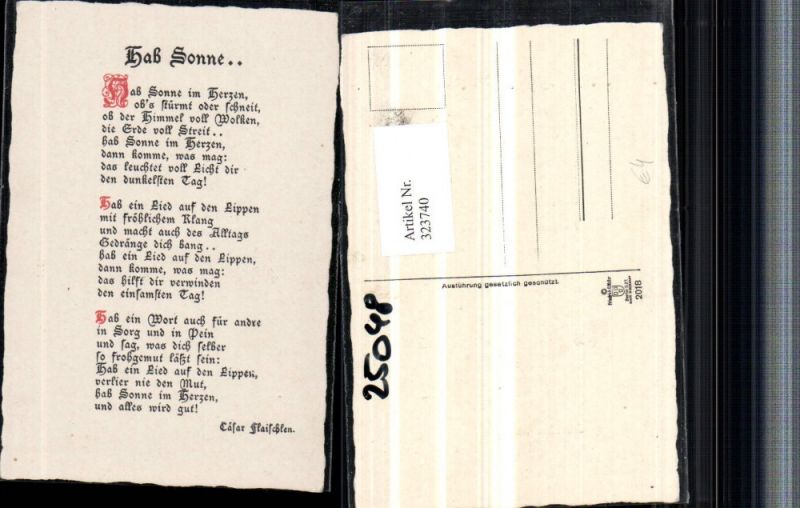 Hab Sonne..
Hab Sonne im Herzen,
ob's stürmt oder schneit,
ob der Himmel voll Wolken,
die Erde voll Streit..
hab Sonne im Herzen,
dann komme, was mag:
das leuchtet voll Licht dir
den dunkelsten Tag!
Hab ein Lied auf den Lippen
mit fröhlichem Klang
und macht auch des Alltags
Gedränge dich bang..
hab ein Lied auf den Lippen,
dann komme, was mag:
das hilft dir verwinden
den einsamsten Tag!
Hab ein Wort auch für andre
in Sorg und in Pein
und sag, was dich selber
so frohgemut läßt sein:
Hab ein Lied auf den Lippen,
verlier nie den Mut,
hab Sonne im Herzen,
und alles wird gut!
Cäsar Flaischlen.
Artikel Nr.
323740
64
Ausführung gesetzlich geschützt.
2018
25048